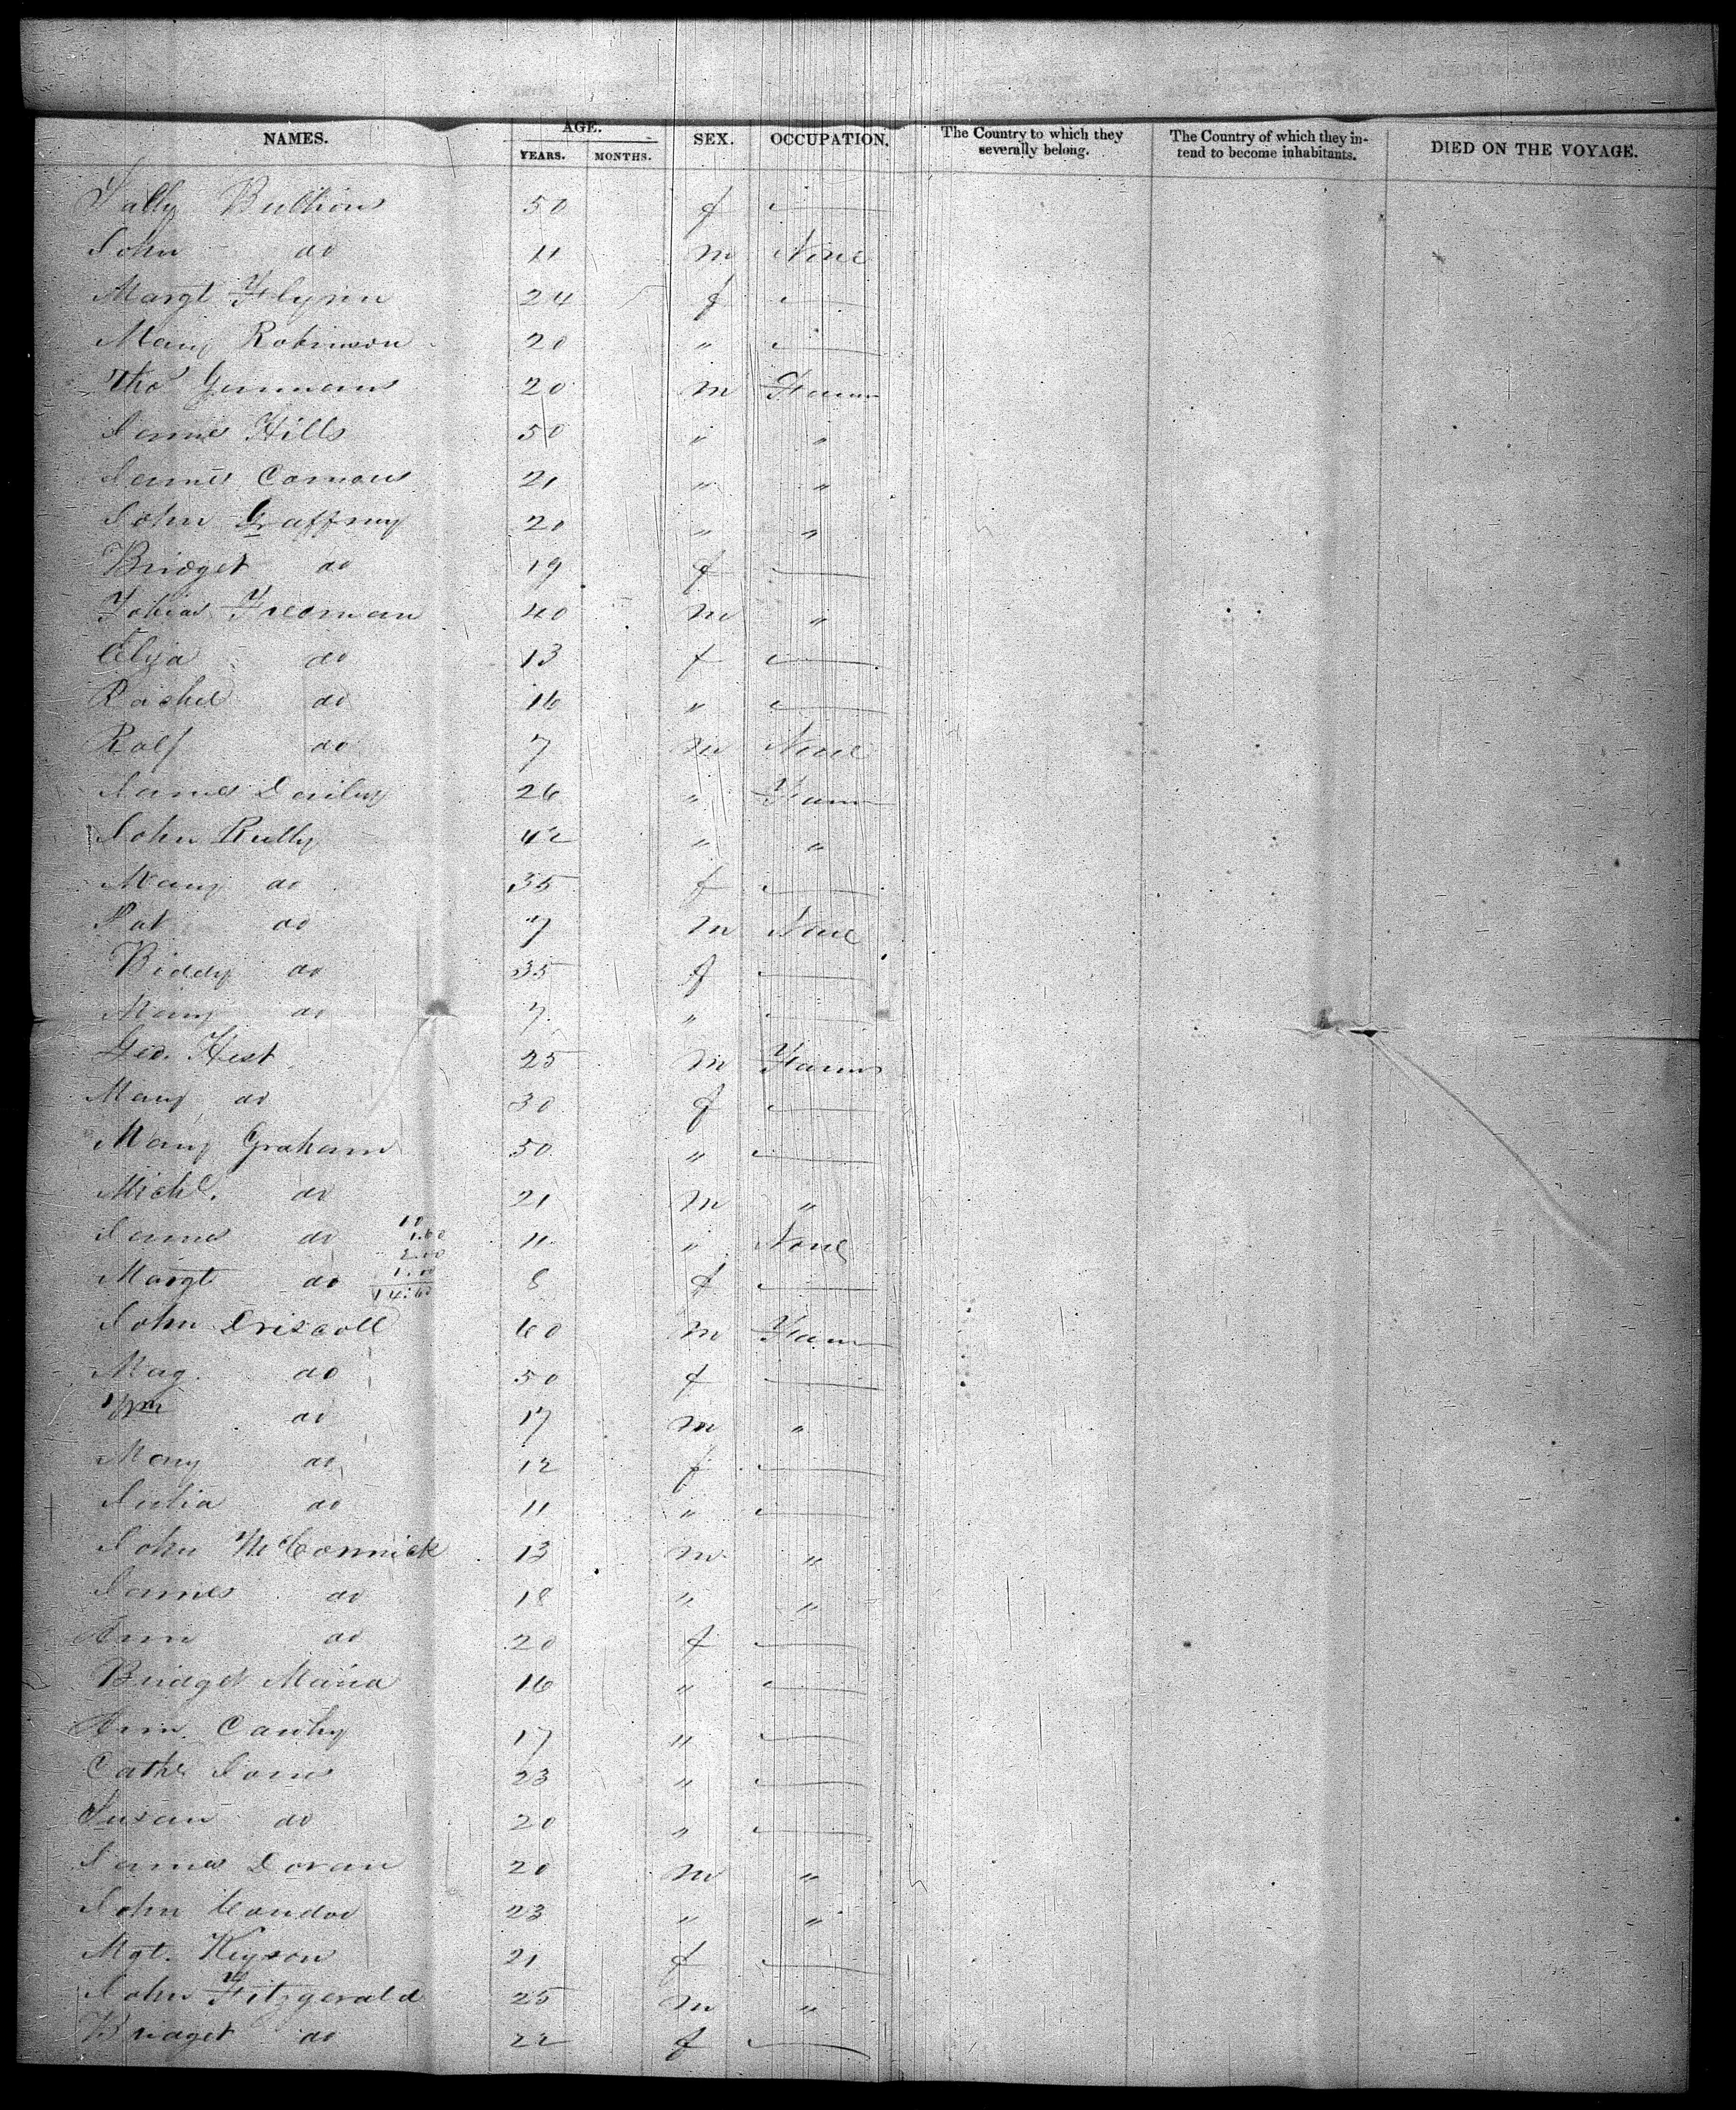 NAMES. AGE. SEX. OCCUPATION. The Country to which they severally belong. The Country of which they in- tend to become inhabitants. DIED ON THE VOYAGE.
YEARS. MONTHS.
Sally Bullions 50 f —
John do 11 m None
Margt Flynn 24 f —
Mary Robinson 20 " —
Thos 20 m Farmr
James Hills 50 " "
James 21 " "
John Gaffney 20 " "
Bridget do 19 f —
Tobias Freeman 40 m "
Eliza do 13 f —
Rachel do 16 " —
Ralf do 7 m None
James 26 " Farm
John Rielly 42 " "
Mary do 35 f —
Pat do 7 m None
Biddy do 35 f —
Mary do 7 " —
Geo. Hest 25 m Farmr
Mary do 30 f —
Mary Graham 50 " —
Michl. do 21 m "
James do 11 " None
Margt do 8 f —
John Driscoll 60 m Farm
Mag. do 50 f —
Wm do 17 m "
Mary do 12 f —
Julia do 11 " —
John McCormick 13 m "
James do 18 " "
Ann do 20 f —
Bridget Maria 16 " —
Ann 17 " —
Cathe 23 " —
Susan do 20 " —
James Doran 20 m "
John Condor 23 " "
Mgt. Keyson 21 f —
John Fitzgerald 25 m "
Bridget do 22 f —